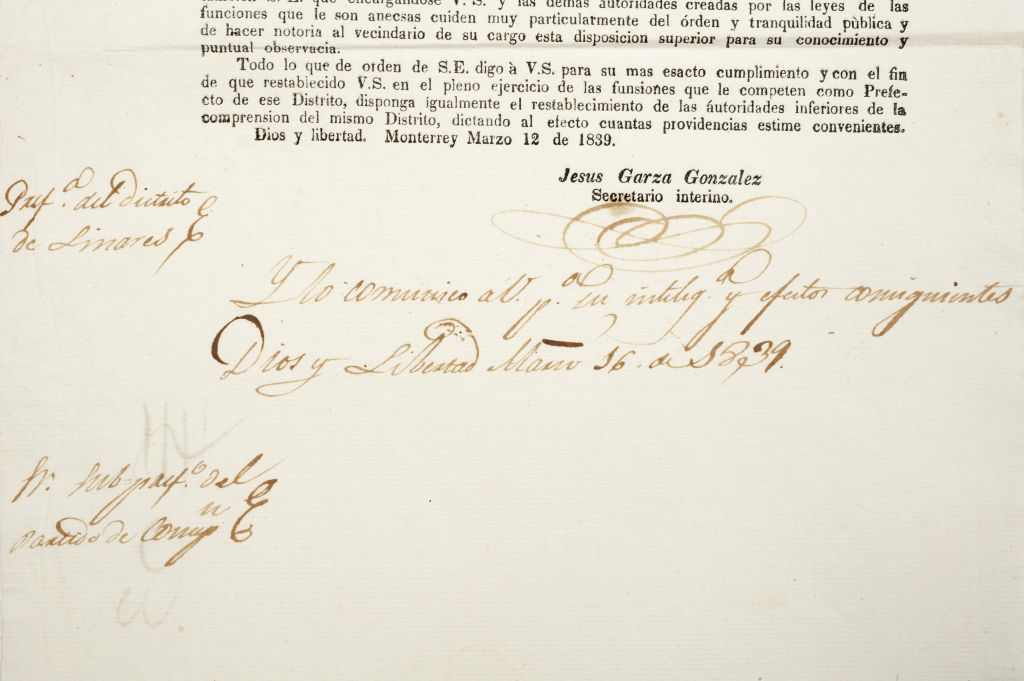 tambien S. E. que encargándose V. S. y las demas autoridades creadas por las leyes de las
funciones que le son anecsas cuiden muy particularmente del órden y tranquilidad pùblica y
de hacer notoria al vecindario de su cargo esta disposicion superior para su conocimiento y
puntual observacia.
Todo lo que de orden de S.E. digo à V.S. para su mas esacto cumplimiento y con el fin
de que restablecido V.S. en el pleno ejercicio de las funsiones que le competen como Prefe-
cto de ese Distrito, disponga igualmente el restablecimiento de las áutoridades inferiores de la
comprension del mismo Distrito, dictando al efecto cuantas providencias estime convenientes.
Dios y libertad. Monterrey Marzo 12 de 1839.
Jesus Garza Gonzalez
Secretario interino.
Pref.ª del Distrito
de Linares
Y lo comunico a V. p.ª su intelig.ª y efectos consiguientes
Dios y Libertad Marzo 16. de 1839.
Sr. Sub-pref.º del
Partido de